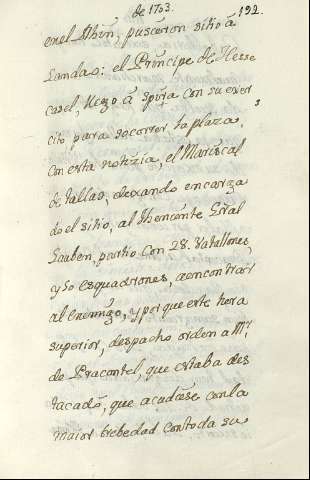 de 1703.
192.
en el Rhin, pusieron sitio á
Landao: el Príncipe de Hesse
casel, llego á Spira con su exer
cito para socorrer la plaza,
con esta notizia, el Mariscal
de tallad, dexando encarga
do el sitio, al theniente Gral
Lauben, partio con 28. Vatallones,
y 50 esquadrones, aencontrar
al enemigo, y por que este hera
superior, despacho orden a Mr.
de Pracontel, que estaba des
tacado, que acudiese con la
maior brebedad con toda su